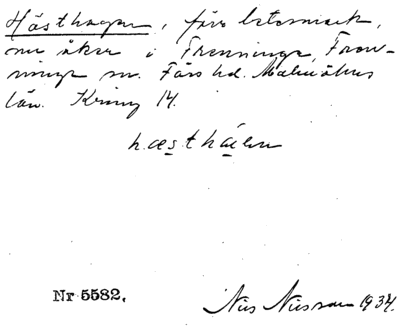 Hästhagen, förr betesmark,
nu åker i Frenninge, Fren-
ninge sn. Färs hd. Malmöhus
län. Kring 14.
hæsthá
Nr 5582.
Nils Nilsson 1934.